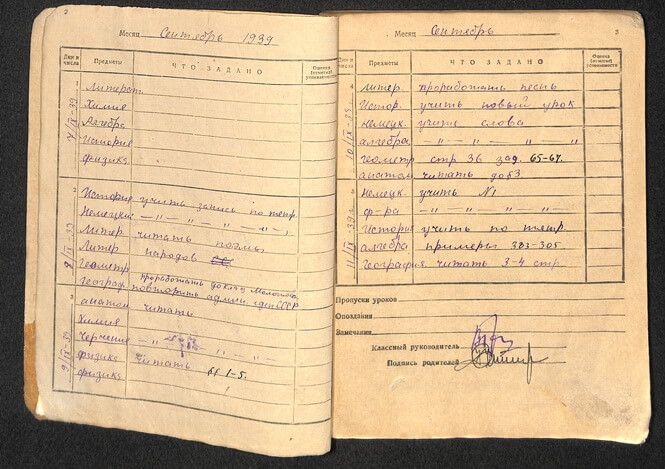 2
Месяц Сентябрь 1939
Дни и числа Предметы ЧТО ЗАДАНО Оценка (отметка) успеваемости
7/IX-39
Литерат.
Химия
Алгебра
История
физика
8/IX 39
История учить запись по тетр.
Немецкий —"— —"— " —"—
Литер. читать поэмы
Литер народов
Геометр проработать доклад Молотова
Географ. повторить админ. СССР
9/IX-39
анатом читать
Химия
Черчение —"—
физика читать §§ 1-5.
физика
Месяц Сентябрь
3
Дни и числа Предметы ЧТО ЗАДАНО Оценка (отметка) успеваемости
10/IX-39
Литер. проработать песнь
Истор. учить новый урок
немецк. учить слова
алгебра —"— —"— —"— —"—
геометр стр 36 зад. 65-67.
анатом читать до §3
11/IX-39г
немецк учить №1
ф-ра —"— —"— " "—
История учить по тетр.
алгебра примеры 303-305
География читать 3-4 стр
Пропуски уроков
Опоздания
Замечания
Классный руководитель
Подпись родителей